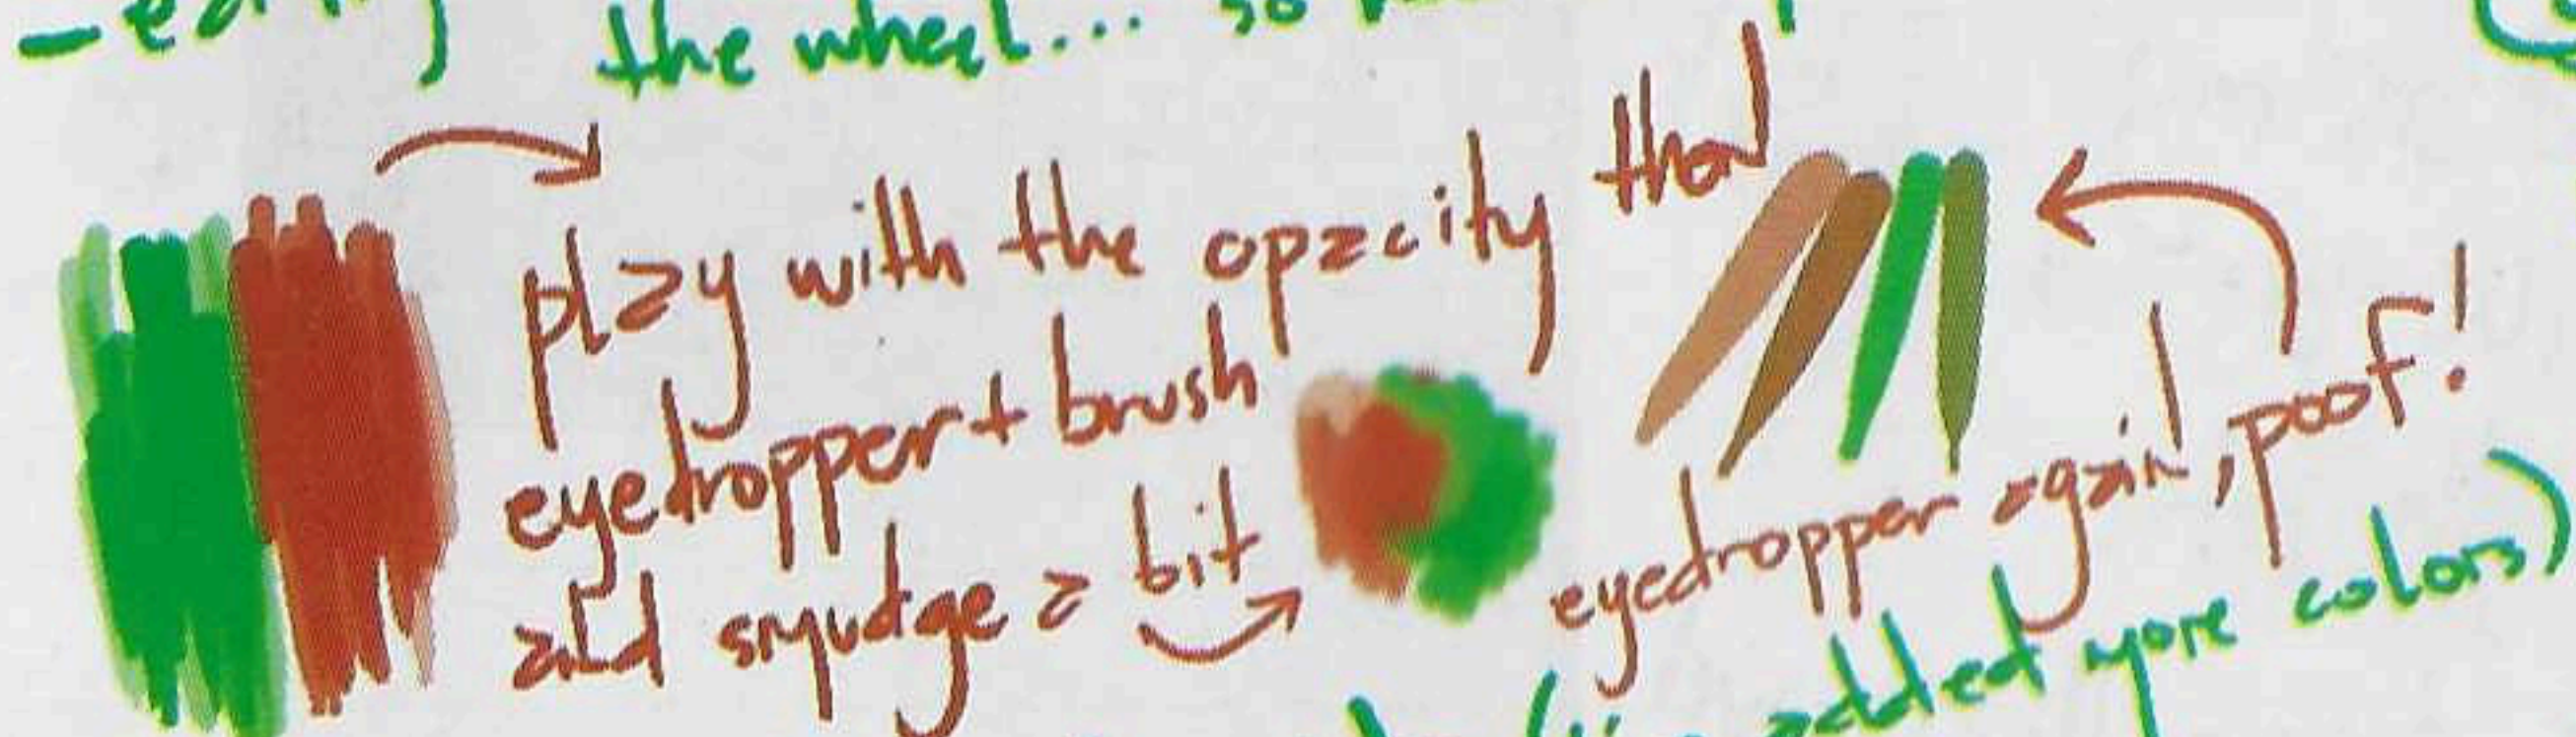 the wheel... so
play with the opacity
eyedropper + brush
and smudge a bit
then
eyedropper again, poof!
added more colors)